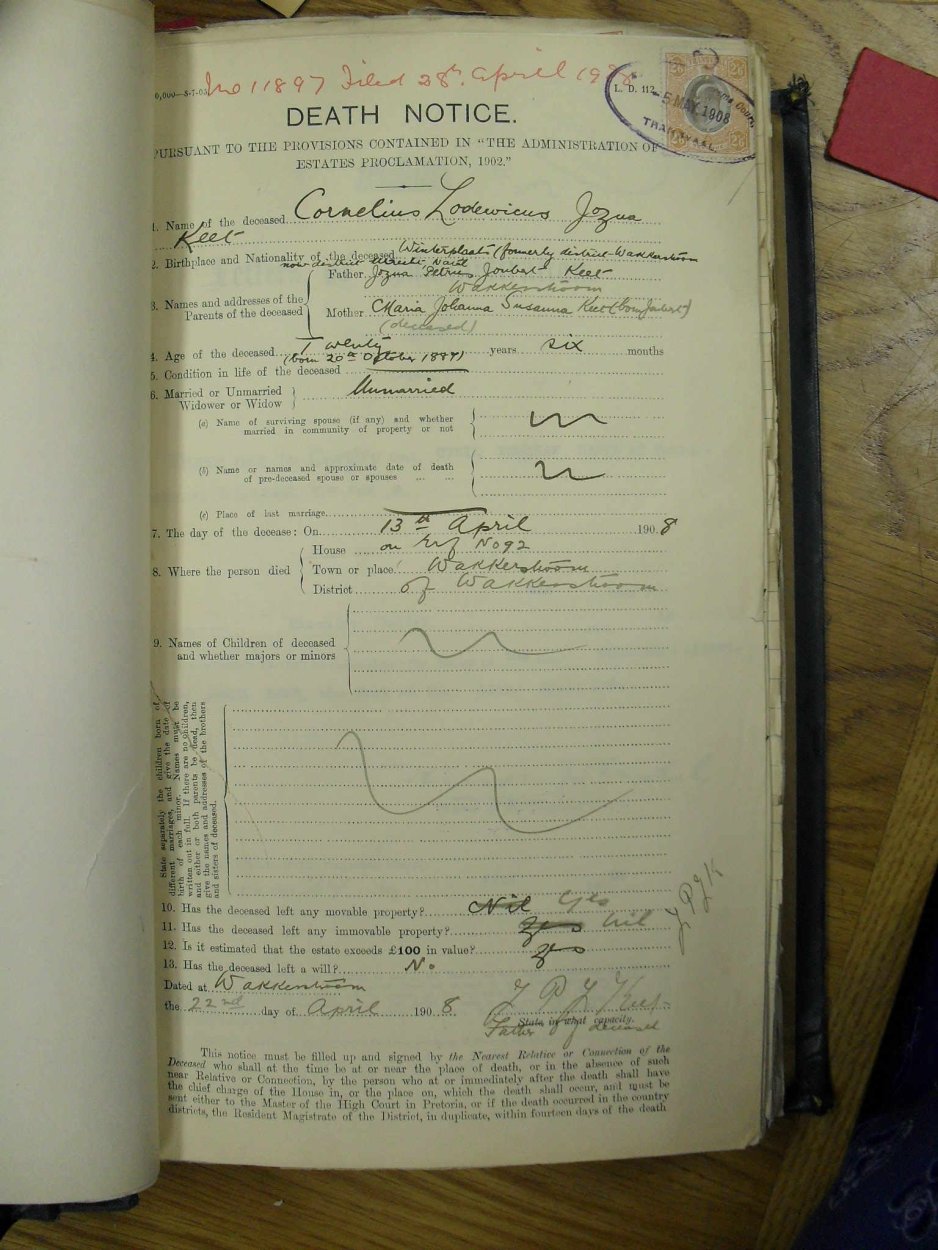 No 11897 Filed 28th. April 1908
0,000—8-7-05 L. D. 112.
5 MAY 1908
TRANSVAAL
2/6 2/6
DEATH NOTICE.
PURSUANT TO THE PROVISIONS CONTAINED IN "THE ADMINISTRATION OF
ESTATES PROCLAMATION, 1902."
1. Name of the deceased Cornelius Lodewicus Jozua
Keet
2. Birthplace and Nationality of the deceased Winterplaats (formerly district Wakkerstroom
now district Utrecht Natal
3. Names and addresses of the
Parents of the deceased
Father Jozua Petrus Joubert Keet
Wakkerstroom
Mother Maria Johanna Susanna Keet (born Joubert)
(deceased)
4. Age of the deceased Twenty years six months
(born 20th October 1887)
5. Condition in life of the deceased
6. Married or Unmarried
Widower or Widow
Unmarried
(a) Name of surviving spouse (if any) and whether
married in community of property or not
(b) Name or names and approximate date of death
of pre-deceased spouse or spouses ... ...
(c) Place of last marriage
7. The day of the decease: On 13th April 1908
8. Where the person died
House on Erf No 92
Town or place Wakkerstroom
District of Wakkerstroom
9. Names of Children of deceased
and whether majors or minors
State separately the children born of
different marriages, and give the date of
birth of each minor. Names must be
written out in full. If there are no children,
and either or both parents be dead, then
give the names and addresses of the brothers
and sisters of deceased.
10. Has the deceased left any movable property? Nil Yes
11. Has the deceased left any immovable property? yes nil
J P J K
12. Is it estimated that the estate exceeds £100 in value? yes
13. Has the deceased left a will? No
Dated at Wakkerstroom
the 22nd day of April 1908
J P J Keet
State in what capacity.
Father of deceased
This notice must be filled up and signed by the Nearest Relative or Connection of the
Deceased who shall at the time be at or near the place of death, or in the absence of such
near Relative or Connection, by the person who at or immediately after the death shall have
the chief charge of the House in, or the place on, which the death shall occur, and must be
sent either to the Master of the High Court in Pretoria, or if the death occurred in the country
districts, the Resident Magistrate of the District, in duplicate, within fourteen days of the death